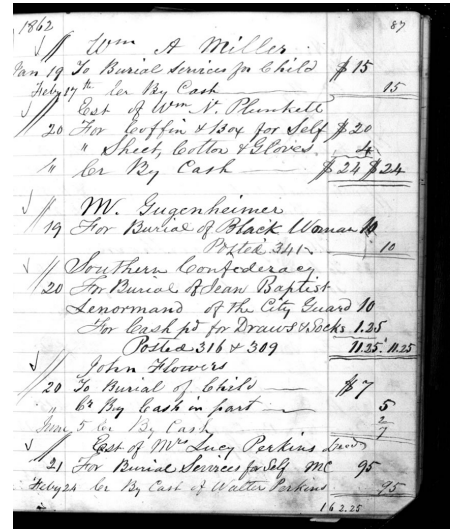 1862 87
// Wm A Miller
Jan 19 To Burial Services for Child $15
Feby 17th Cr By Cash 15
// Est of Wm N. Plunkett
20 For Coffin & Box for Self $20
" Sheet, Cotton & Gloves 4
" Cr By Cash $24 $24
// M. Gugenheimer
19 For Burial of Black Woman 10
Posted 341 10
// Southern Confederacy
20 For Burial of Jean Baptist
Lenormand of the City Guard 10
For Cash pd for Draws & Socks 1.25
Posted 316 & 309 11.25 11.25
// John Flowers
20 To Burial of Child $7
" Cr By Cash in part 5
June 5 Cr By Cash 2
7
// Est of Mrs Lucy Perkins
21 For Burial Services for Self MC 95
Feby 24 Cr By Cash of Walter Perkins 95
162.25